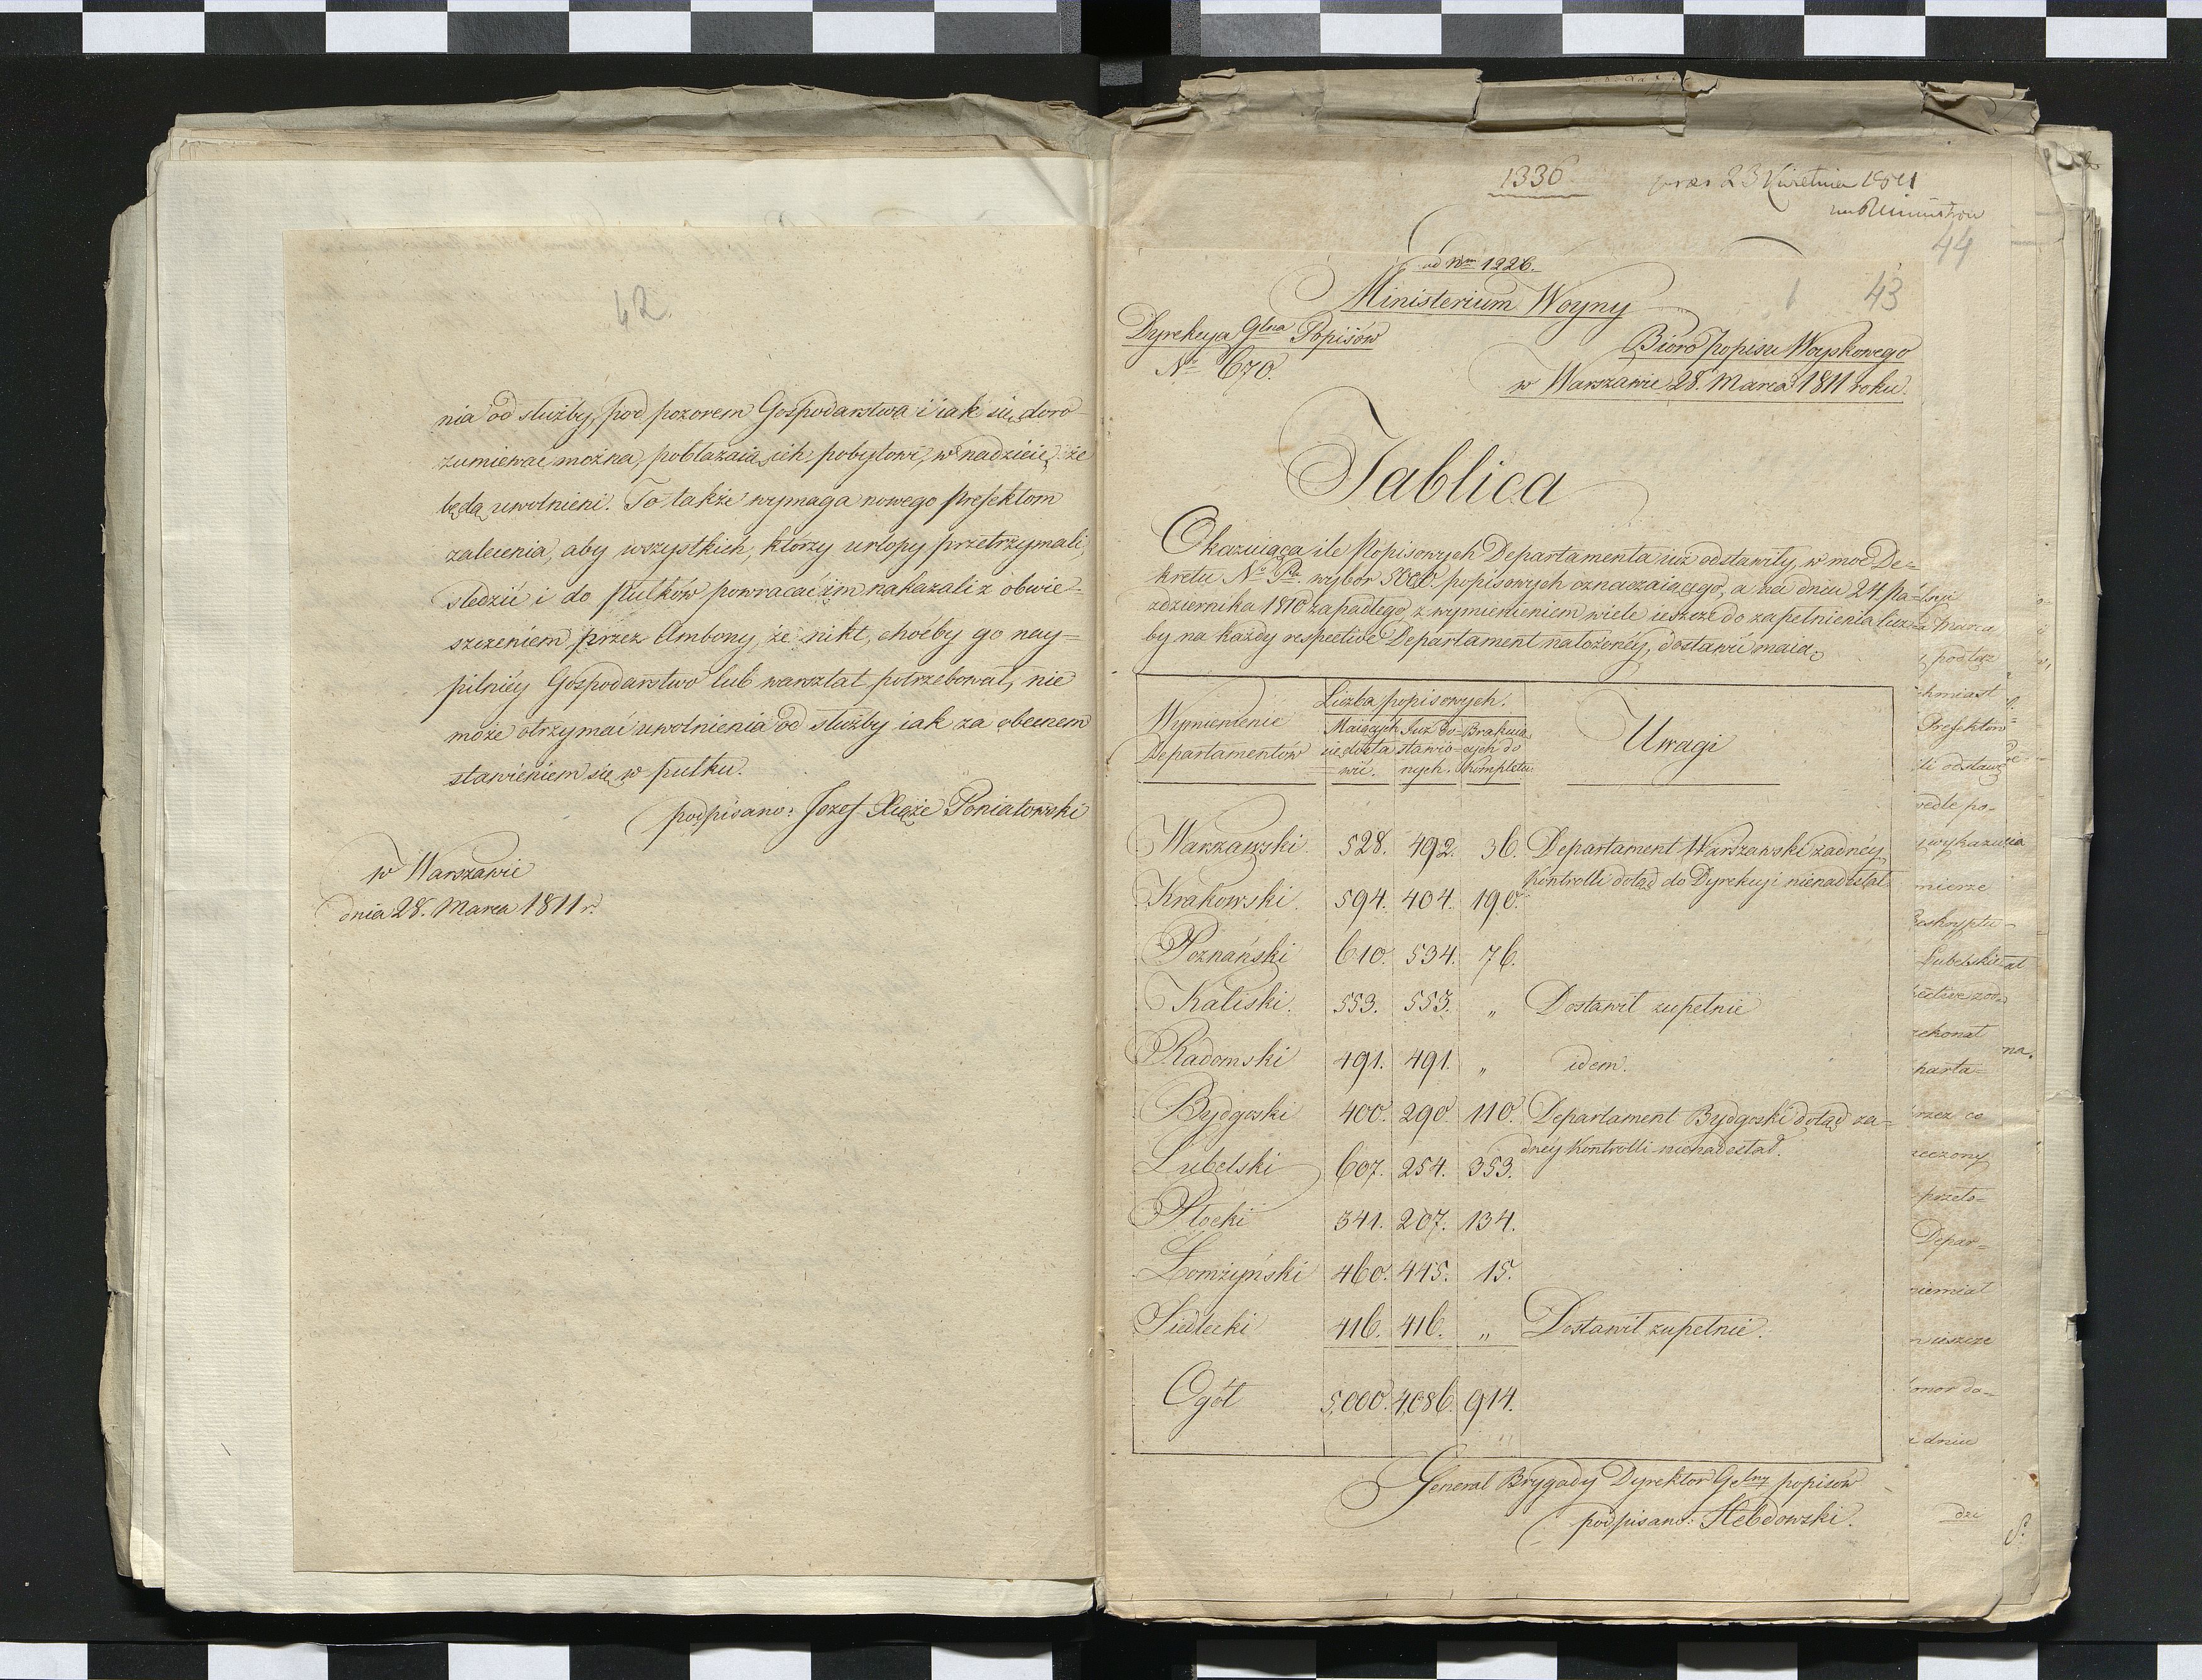 42
nia od służby, pod pozorem Gospodarstwa i iak się doro-
zumiewać można, pobłażaią ich pobytowi, w nadzieię że
będą uwolnieni. To także wymaga nowego Prefektom
zalecenia, aby wszystkich, którzy urlopy przetrzymali,
śledzić i do Pułków powracać im nakazali z obwie-
szczeniem przez Ambony, że nikt, choćby go nay=
pilniéy Gospodarstwo lub warsztat potrzebował, nie
może otrzymać uwolnienia od służby iak za obecnem
stawieniem się w pułku.
podpisano: Jozef Xiąże Poniatowski
w Warszawie
dnia 28. Marca 1811 r.
1336
23 Kwietnia 1811
44
ad Num 1226.
Ministerium Woyny
43
Dyrekcya Glna Popisów
Nr 670.
Bióro popisu Woyskowego
w Warszawie 28. Marca 1811 roku.
Tablica
Okazuiąca ile Popisowych Departamenta iuż odstawiły w moc De=
kretu wybor 5000. popisowych oznaczaiącego, a na dniu 24 Pa=
ździernika 1810 zapadłego, z wymienieniem wiele ieszcze do zapełnienia licz=
by na każdy respective Departament nałożonéy, dostawić maią.
Wymienienie Departamentów
Liczba popisowych.
Maiących się dostawić.
Już dostawionych.
Brakuiących do kompletu.
Uwagi
Warszawski 528. 492. 36. Departament Warszawski żadnéy
Kontrolli dotąd do Dyrekcyi nienadesłał
Krakowski. 594. 404. 190.
Poznański 610. 534. 76.
Kaliski. 553. 553. „ Dostawił zupełnie
Radomski 491. 491. „ idem.
Bydgoski 400. 290. 110. Departament Bydgoski dotąd ża=
dnéy Kontrolli nienadesłał.
Lubelski 607. 254. 353.
Płocki 341. 207. 134.
Łomżyński 460. 445. 15.
Siedlecki 416. 416. „ Dostawił zupełnie.
Ogół 5,000. 4,086. 914.
Generał Brygady Dyrektor Gelny popisów
podpisano: Hebdowski.